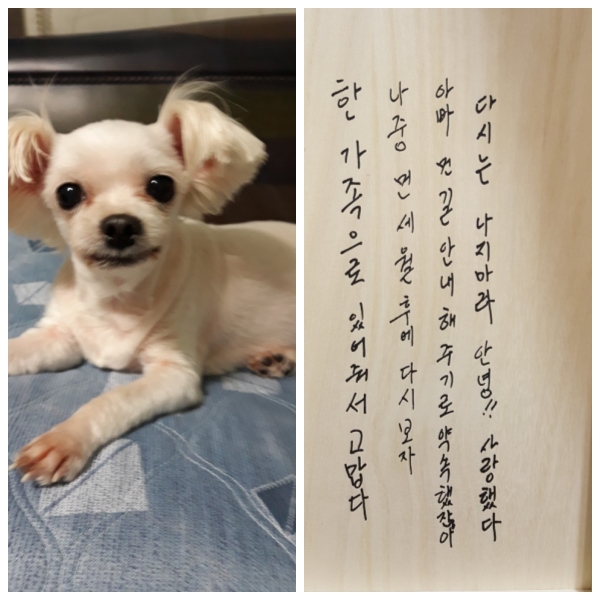 한 가족으로 있어줘서 고맙다
나중 먼 세월 후에 다시 보자
아빠 먼길 안내 해 주기로 약속했잖아
다시는 나지마라 안녕!! 사랑했다